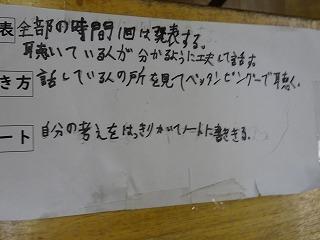 表 全部の時間1回は発表する。
聴いている人が分かるように工夫して話す。
き方 話している人の所を見てペッタンピングーで聴く。
ート 自分の考えをはっきりかがてノートに書ききる。